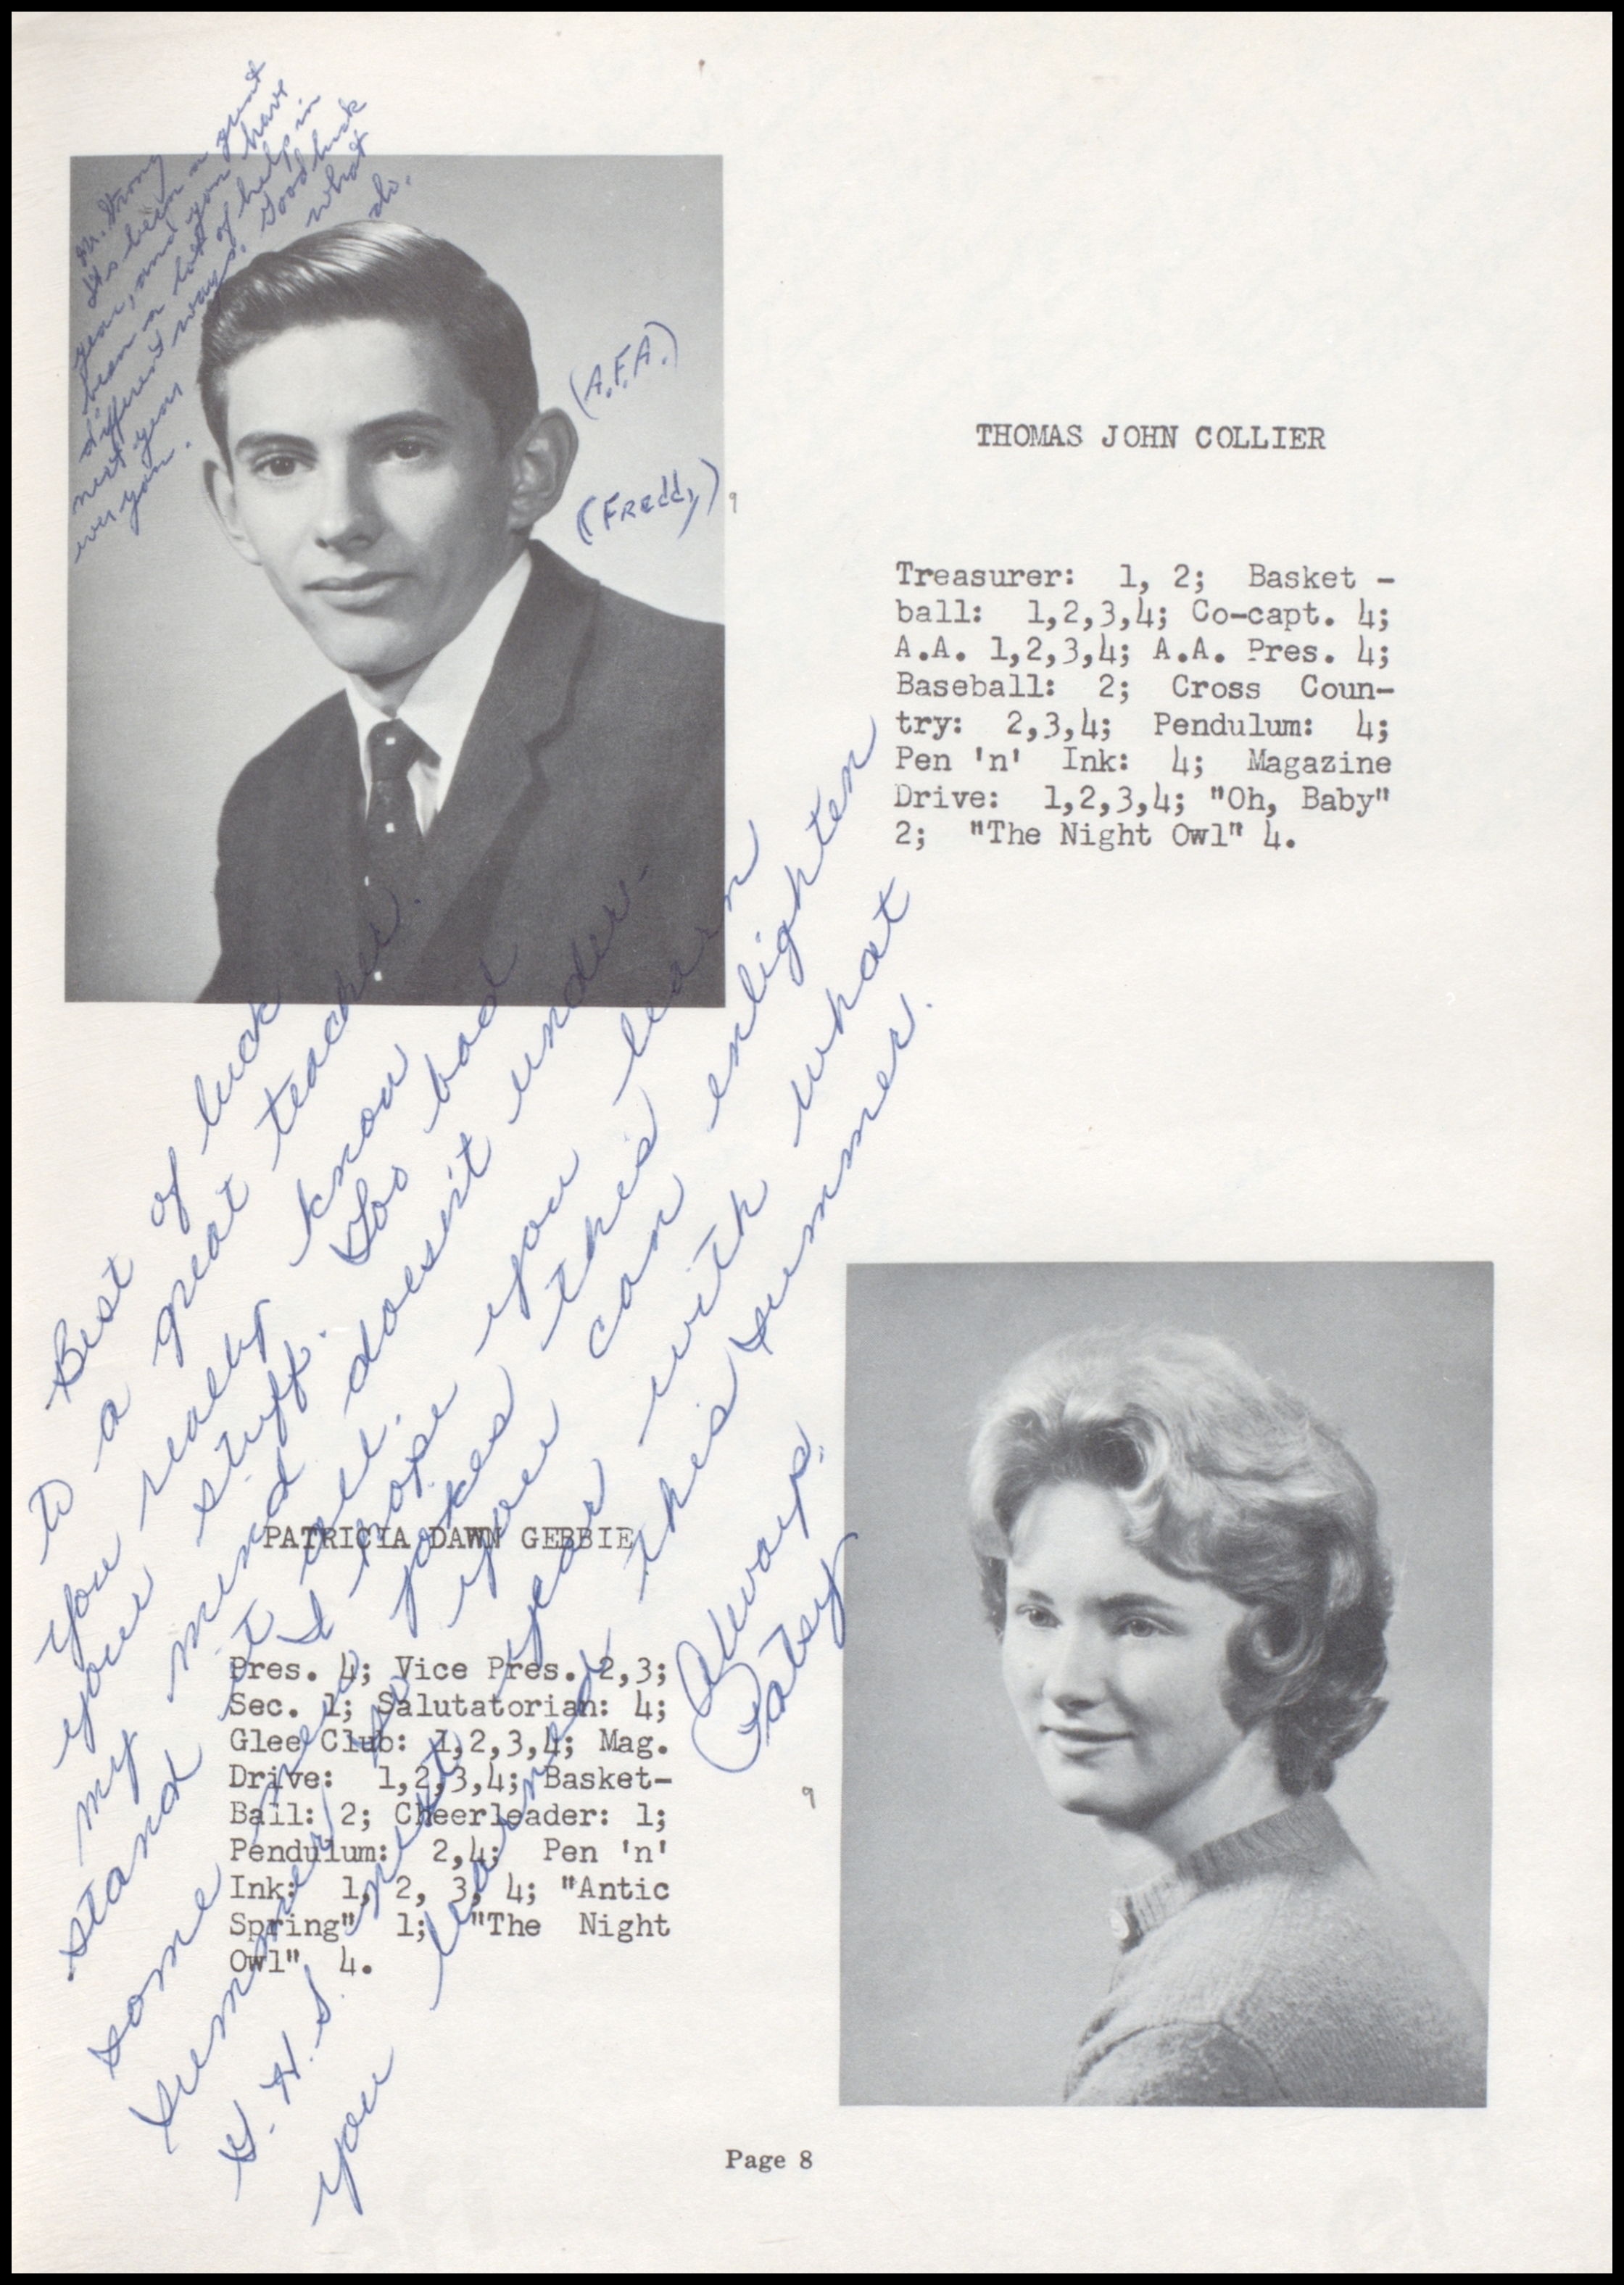 Mr. Strong
It's been a great
year, and you have
been a lot of help in
different ways. Good luck
next year what
ever you do.
(A.F.A.)
(Freddy)
9
THOMAS JOHN COLLIER
Treasurer: 1, 2; Basket -
ball: 1,2,3,4; Co-capt. 4;
A.A. 1,2,3,4; A.A. Pres. 4;
Baseball: 2; Cross Coun-
try: 2,3,4; Pendulum: 4;
Pen 'n' Ink: 4; Magazine
Drive: 1,2,3,4; "Oh, Baby"
2; "The Night Owl" 4.
Best of luck
to a great teacher.
You really know
your stuff. Too bad
my mind doesn't under-
stand it all.
I hope you learn
some new jokes this
summer so you can enlighten
G.H.S. next year with what
you learned this summer.
Always,
Patsy
PATRICIA DAWN GEBBIE
Pres. 4; Vice Pres. 2,3;
Sec. 1; Salutatorian: 4;
Glee Club: 1,2,3,4; Mag.
Drive: 1,2,3,4; Basket-
Ball: 2; Cheerleader: 1;
Pendulum: 2,4; Pen 'n'
Ink: 1, 2, 3, 4; "Antic
Spring" 1; "The Night
Owl" 4.
9
Page 8